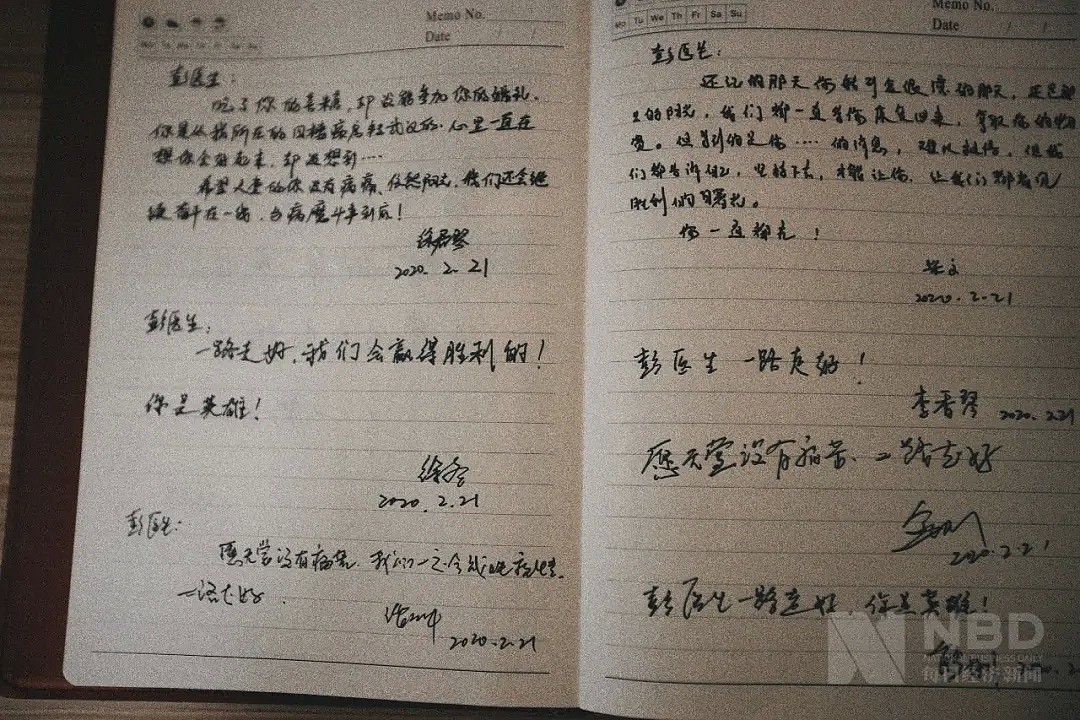 Memo No.
Date / /
彭医生：
吃了你的喜糖，却没能参加你的婚礼。
你是从我所在的
心里一直在
想你会好起来，却没想到……
希望天堂的你没有病痛，依然阳光，我们还会继
续奋斗在一线，与病魔斗争到底！
徐君琴
2020. 2. 21
彭医生：
一路走好，我们会赢得胜利的！
你是英雄！
2020. 2. 21
彭医生：
愿天堂没有病苦，我们一定会战胜病魔。
一路走好．
2020.2.21
Memo No.
Mo Tu We Th Fr Sa Su
Date / /
彭医生：
还记的那天你
的那天，还是那
的阳光，我们都一直等你康复回来，
但等到的是你……的消息，难以
但我
们都告诉自己，坚持下去，才能让你，让我们都看见
胜利的曙光。
你一直都在！
2020.2.21
彭医生 一路走好！
李香琴 2020.2.21
愿天堂没有病苦、一路走好
2020.2.21
彭医生一路走好 你是英雄！
NBD
NATIONAL BUSINESS DAILY
每日经济新闻